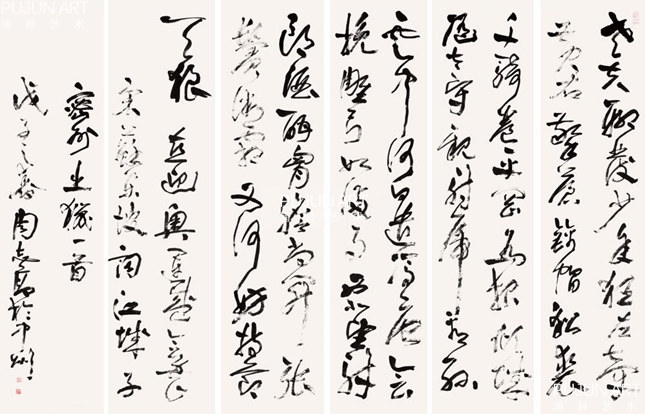 老夫聊發少年狂左牽
黄右擎蒼錦帽貂裘
千騎卷平岡為報傾城
隨太守親射虎看孫
雲中何日遣馮唐會
挽雕弓如滿月西北望射
郎酒酣胸膽尚開張
鬢微霜又何妨持節
天狼 迎奥運
蘇東坡詞江城子
密州出獵一首
戊子之春周志高於
PUJUN ART